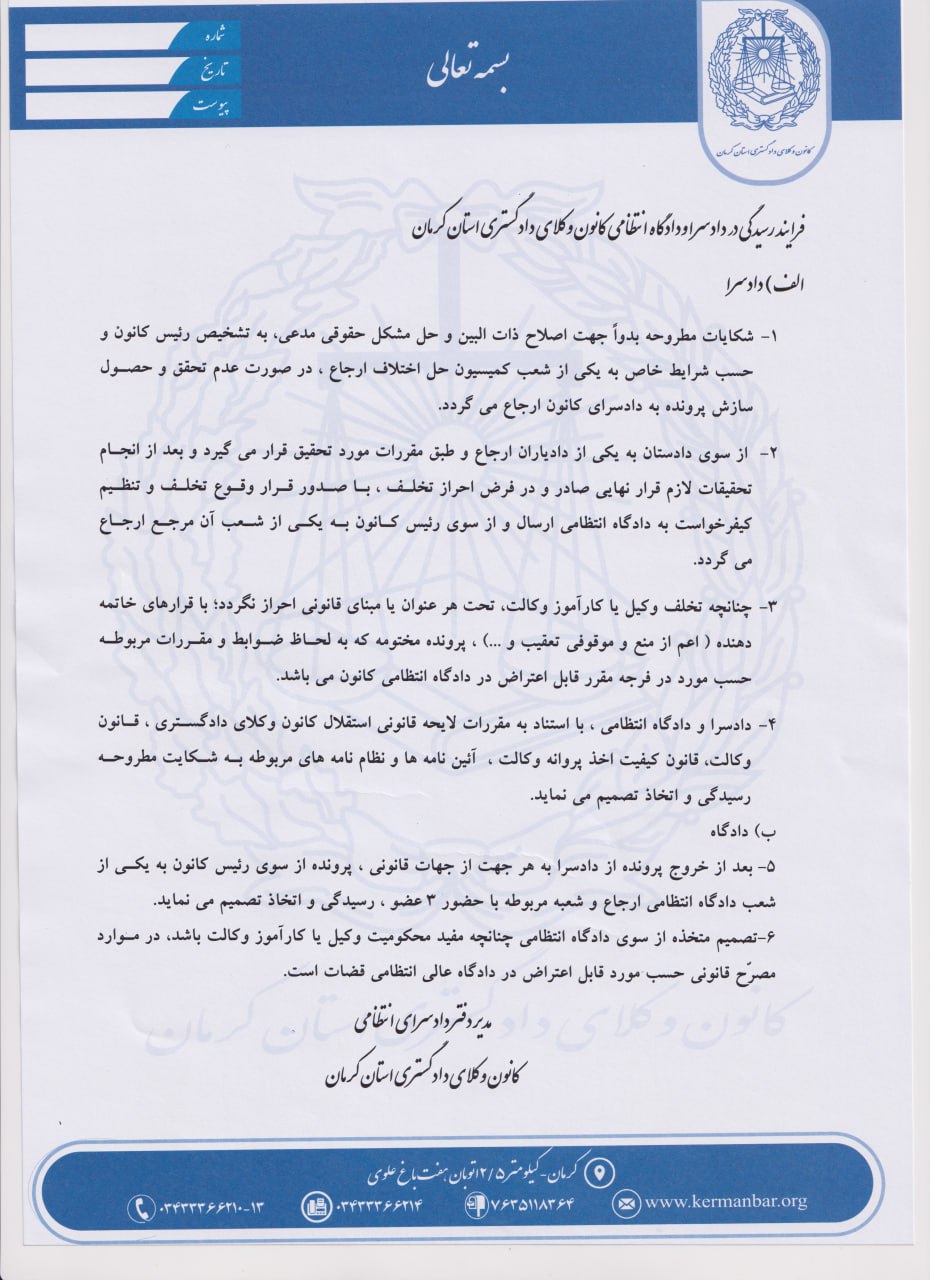 بسمه تعالی
شماره
تاریخ
پیوست
کانون وکلای دادگستری استان کرمان
فرایند رسیدگی در دادسرا و دادگاه انتظامی کانون وکلای دادگستری استان کرمان
الف) دادسرا
۱- شکایات مطروحه بدواً جهت اصلاح ذات البین و حل مشکل حقوقی مدعی، به تشخیص رئیس کانون و
حسب شرایط خاص به یکی از شعب کمیسیون حل اختلاف ارجاع ، در صورت عدم تحقق و حصول
سازش پرونده به دادسرای کانون ارجاع می گردد.
۲- از سوی دادستان به یکی از دادیاران ارجاع و طبق مقررات مورد تحقیق قرار می گیرد و بعد از انجام
تحقیقات لازم قرار نهایی صادر و در فرض احراز تخلف ، با صدور قرار وقوع تخلف و تنظیم
کیفرخواست به دادگاه انتظامی ارسال و از سوی رئیس کانون به یکی از شعب آن مرجع ارجاع
می گردد.
۳- چنانچه تخلف وکیل یا کارآموز وکالت، تحت هر عنوان یا مبنای قانونی احراز نگردد؛ با قرارهای خاتمه
دهنده ( اعم از منع و موقوفی تعقیب و ...) ، پرونده مختومه که به لحاظ ضوابط و مقررات مربوطه
حسب مورد در فرجه مقرر قابل اعتراض در دادگاه انتظامی کانون می باشد.
۴- دادسرا و دادگاه انتظامی ، با استناد به مقررات لایحه قانونی استقلال کانون وکلای دادگستری ، قانون
وکالت، قانون کیفیت اخذ پروانه وکالت ، آئین نامه ها و نظام نامه های مربوطه به شکایت مطروحه
رسیدگی و اتخاذ تصمیم می نماید.
ب) دادگاه
۵- بعد از خروج پرونده از دادسرا به هر جهت از جهات قانونی ، پرونده از سوی رئیس کانون به یکی از
شعب دادگاه انتظامی ارجاع و شعبه مربوطه با حضور ۳ عضو ، رسیدگی و اتخاذ تصمیم می نماید.
۶-تصمیم متخذه از سوی دادگاه انتظامی چنانچه مفید محکومیت وکیل یا کارآموز وکالت باشد، در موارد
مصرّح قانونی حسب مورد قابل اعتراض در دادگاه عالی انتظامی قضات است.
مدیر دفتر دادسرای انتظامی
کانون وکلای دادگستری استان کرمان
کانون وکلای دادگستری استان کرمان
کرمان-کیلومتر ۲/۵ اتوبان هفت باغ علوی
www.kermanbar.org ۷۶۳۵۱۱۸۳۶۴ ۰۳۴۳۳۳۶۶۲۱۴ ۰۳۴۳۳۳۶۶۲۱۰-۱۳